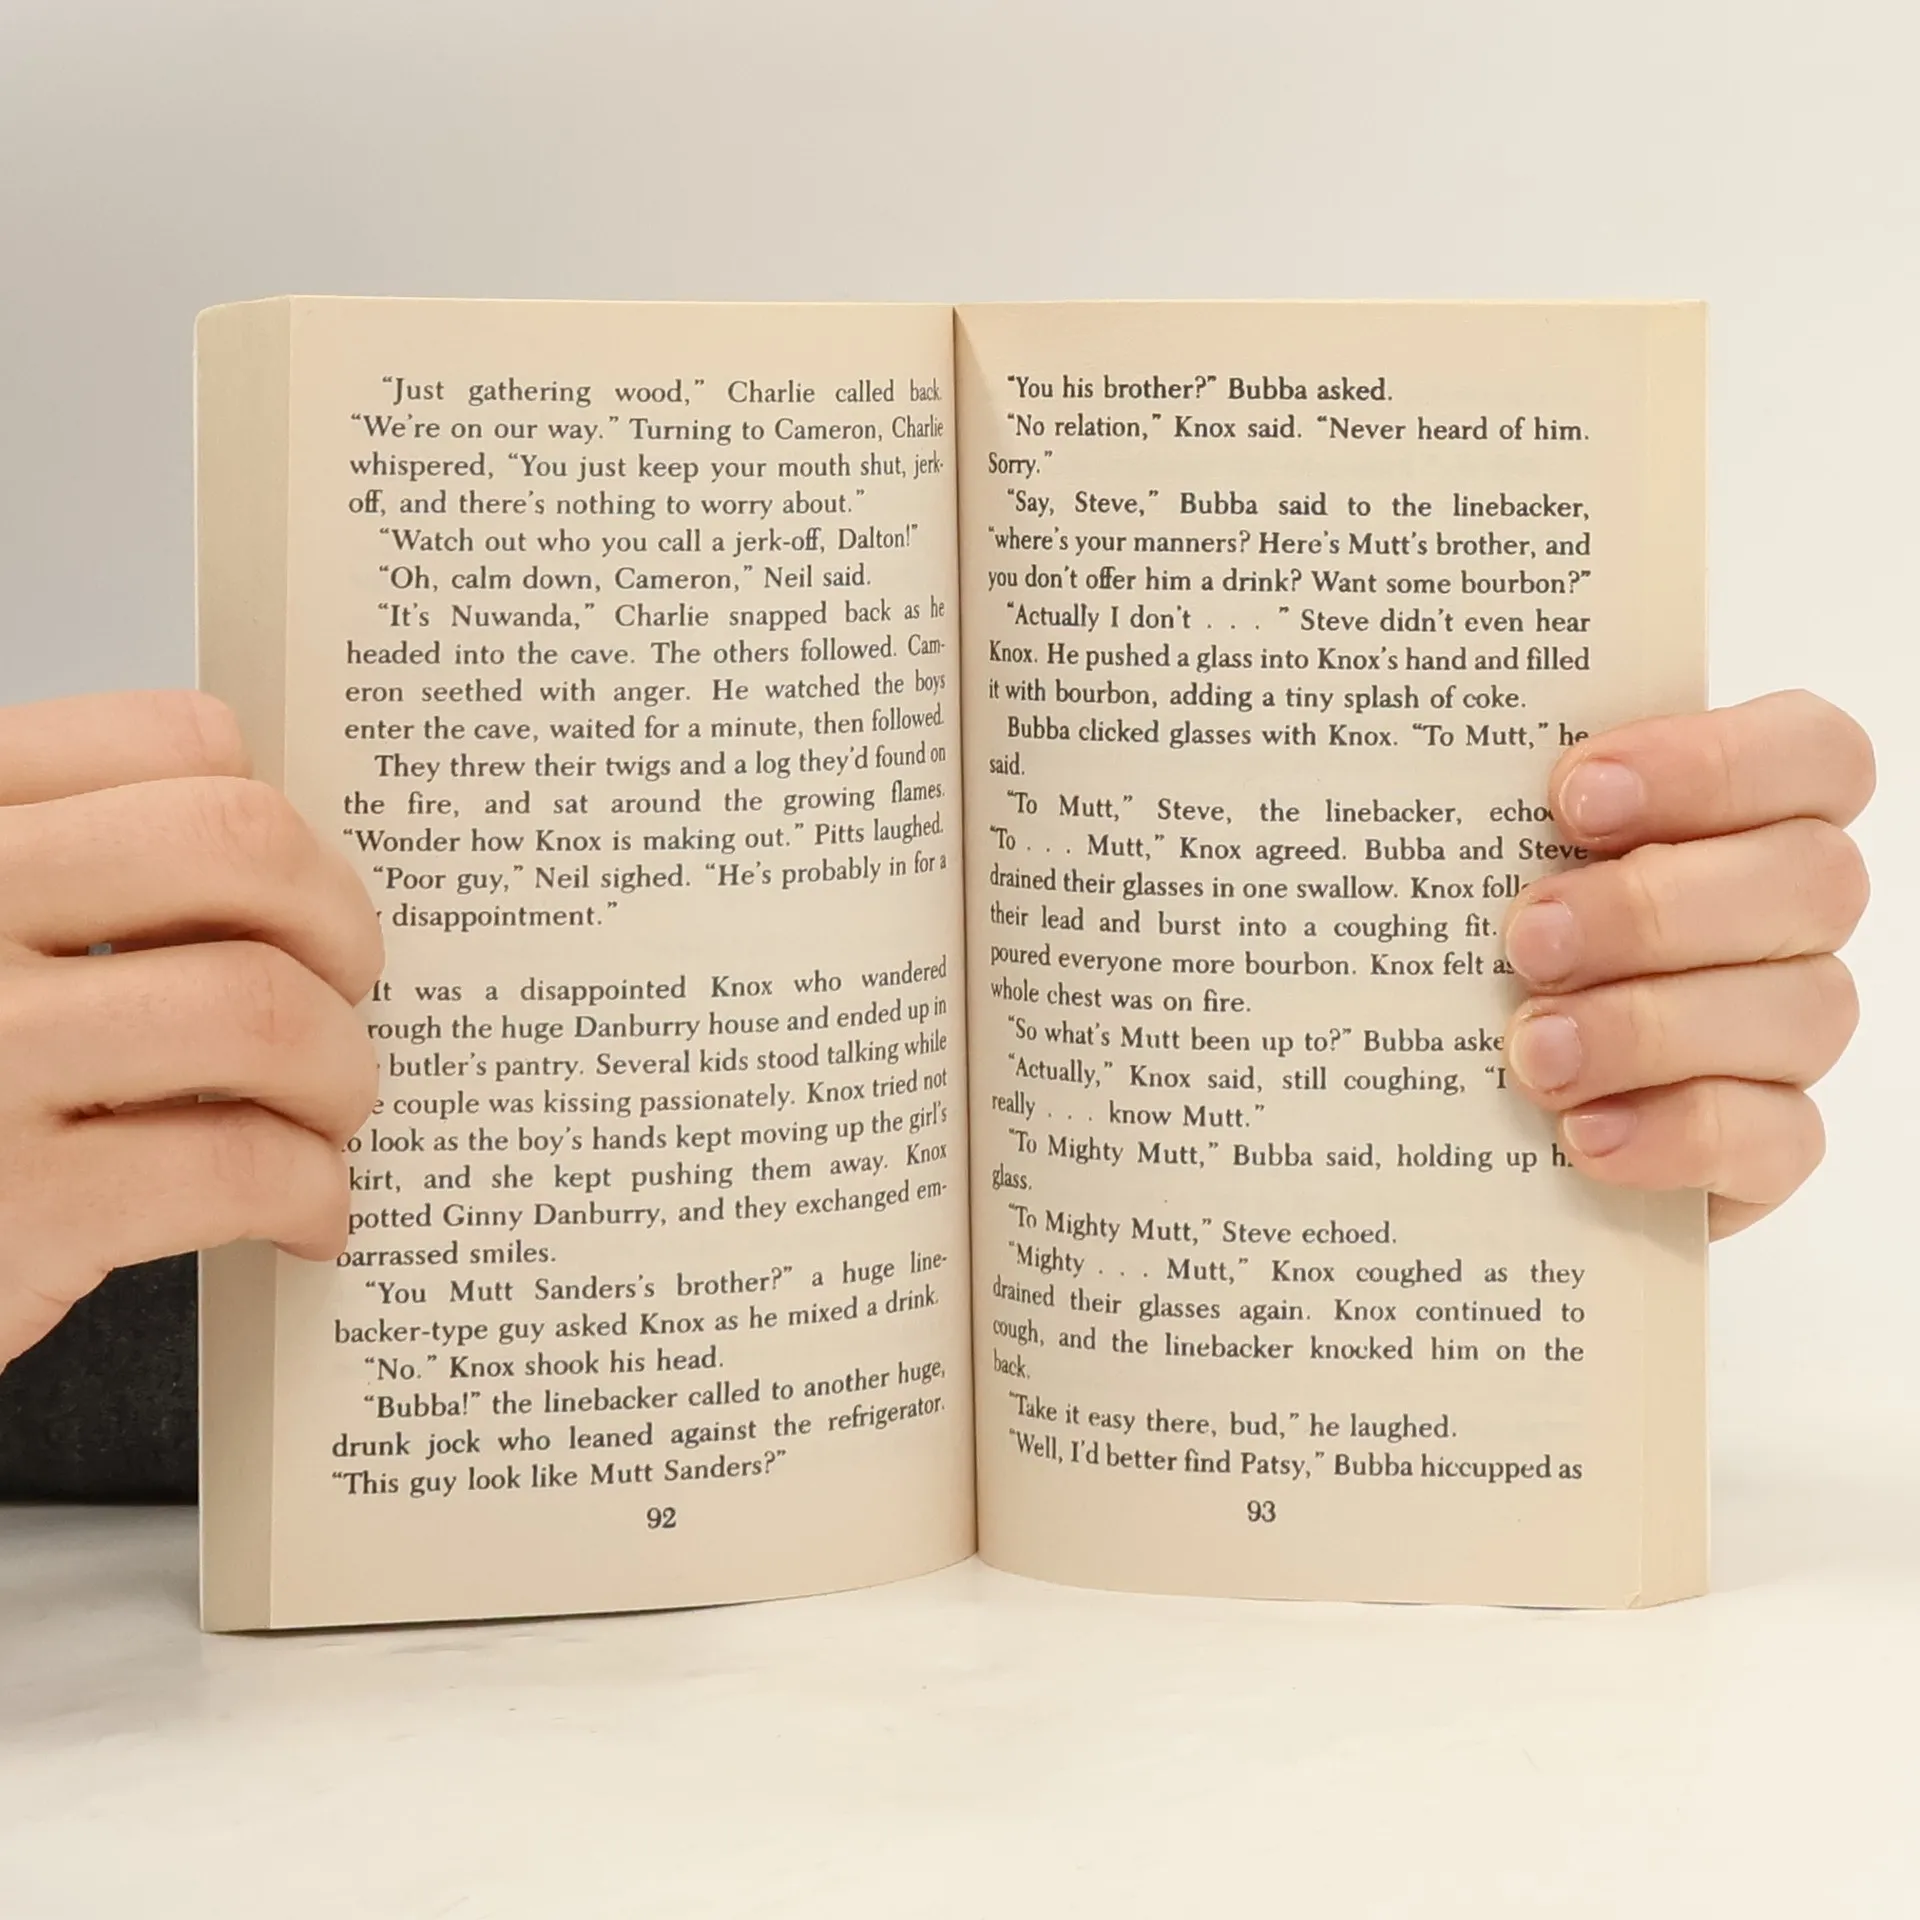 “Just gathering wood,” Charlie called back.
“We’re on our way.” Turning to Cameron, Charlie
whispered, “You just keep your mouth shut, jerk-
off, and there’s nothing to worry about.”
“Watch out who you call a jerk-off, Dalton!”
“Oh, calm down, Cameron,” Neil said.
“It’s Nuwanda,” Charlie snapped back as he
headed into the cave. The others followed. Cam-
eron seethed with anger. He watched the boys
enter the cave, waited for a minute, then followed.
They threw their twigs and a log they’d found on
the fire, and sat around the growing flames.
“Wonder how Knox is making out.” Pitts laughed.
“Poor guy,” Neil sighed. “He’s probably in for a
disappointment.”
It was a disappointed Knox who wandered
rough the huge Danburry house and ended up in
butler’s pantry. Several kids stood talking while
e couple was kissing passionately. Knox tried not
o look as the boy’s hands kept moving up the girl’s
kirt, and she kept pushing them away. Knox
potted Ginny Danburry, and they exchanged em-
barrassed smiles.
“You Mutt Sanders’s brother?” a huge line-
backer-type guy asked Knox as he mixed a drink.
“No.” Knox shook his head.
“Bubba!” the linebacker called to another huge,
drunk jock who leaned against the refrigerator.
“This guy look like Mutt Sanders?”
92
“You his brother?” Bubba asked.
“No relation,” Knox said. “Never heard of him.
Sorry.”
“Say, Steve,” Bubba said to the linebacker,
“where’s your manners? Here’s Mutt’s brother, and
you don’t offer him a drink? Want some bourbon?”
“Actually I don’t . . . ” Steve didn’t even hear
Knox. He pushed a glass into Knox’s hand and filled
it with bourbon, adding a tiny splash of coke.
Bubba clicked glasses with Knox. “To Mutt,” he
said.
“To Mutt,” Steve, the linebacker, echo
“To . . . Mutt,” Knox agreed. Bubba and Steve
drained their glasses in one swallow. Knox foll
their lead and burst into a coughing fit.
poured everyone more bourbon. Knox felt as
whole chest was on fire.
“So what’s Mutt been up to?” Bubba aske
“Actually,” Knox said, still coughing, “I
really . . . know Mutt.”
“To Mighty Mutt,” Bubba said, holding up h
glass.
“To Mighty Mutt,” Steve echoed.
“Mighty . . . Mutt,” Knox coughed as they
drained their glasses again. Knox continued to
cough, and the linebacker knocked him on the
back.
“Take it easy there, bud,” he laughed.
“Well, I’d better find Patsy,” Bubba hiccupped as
93